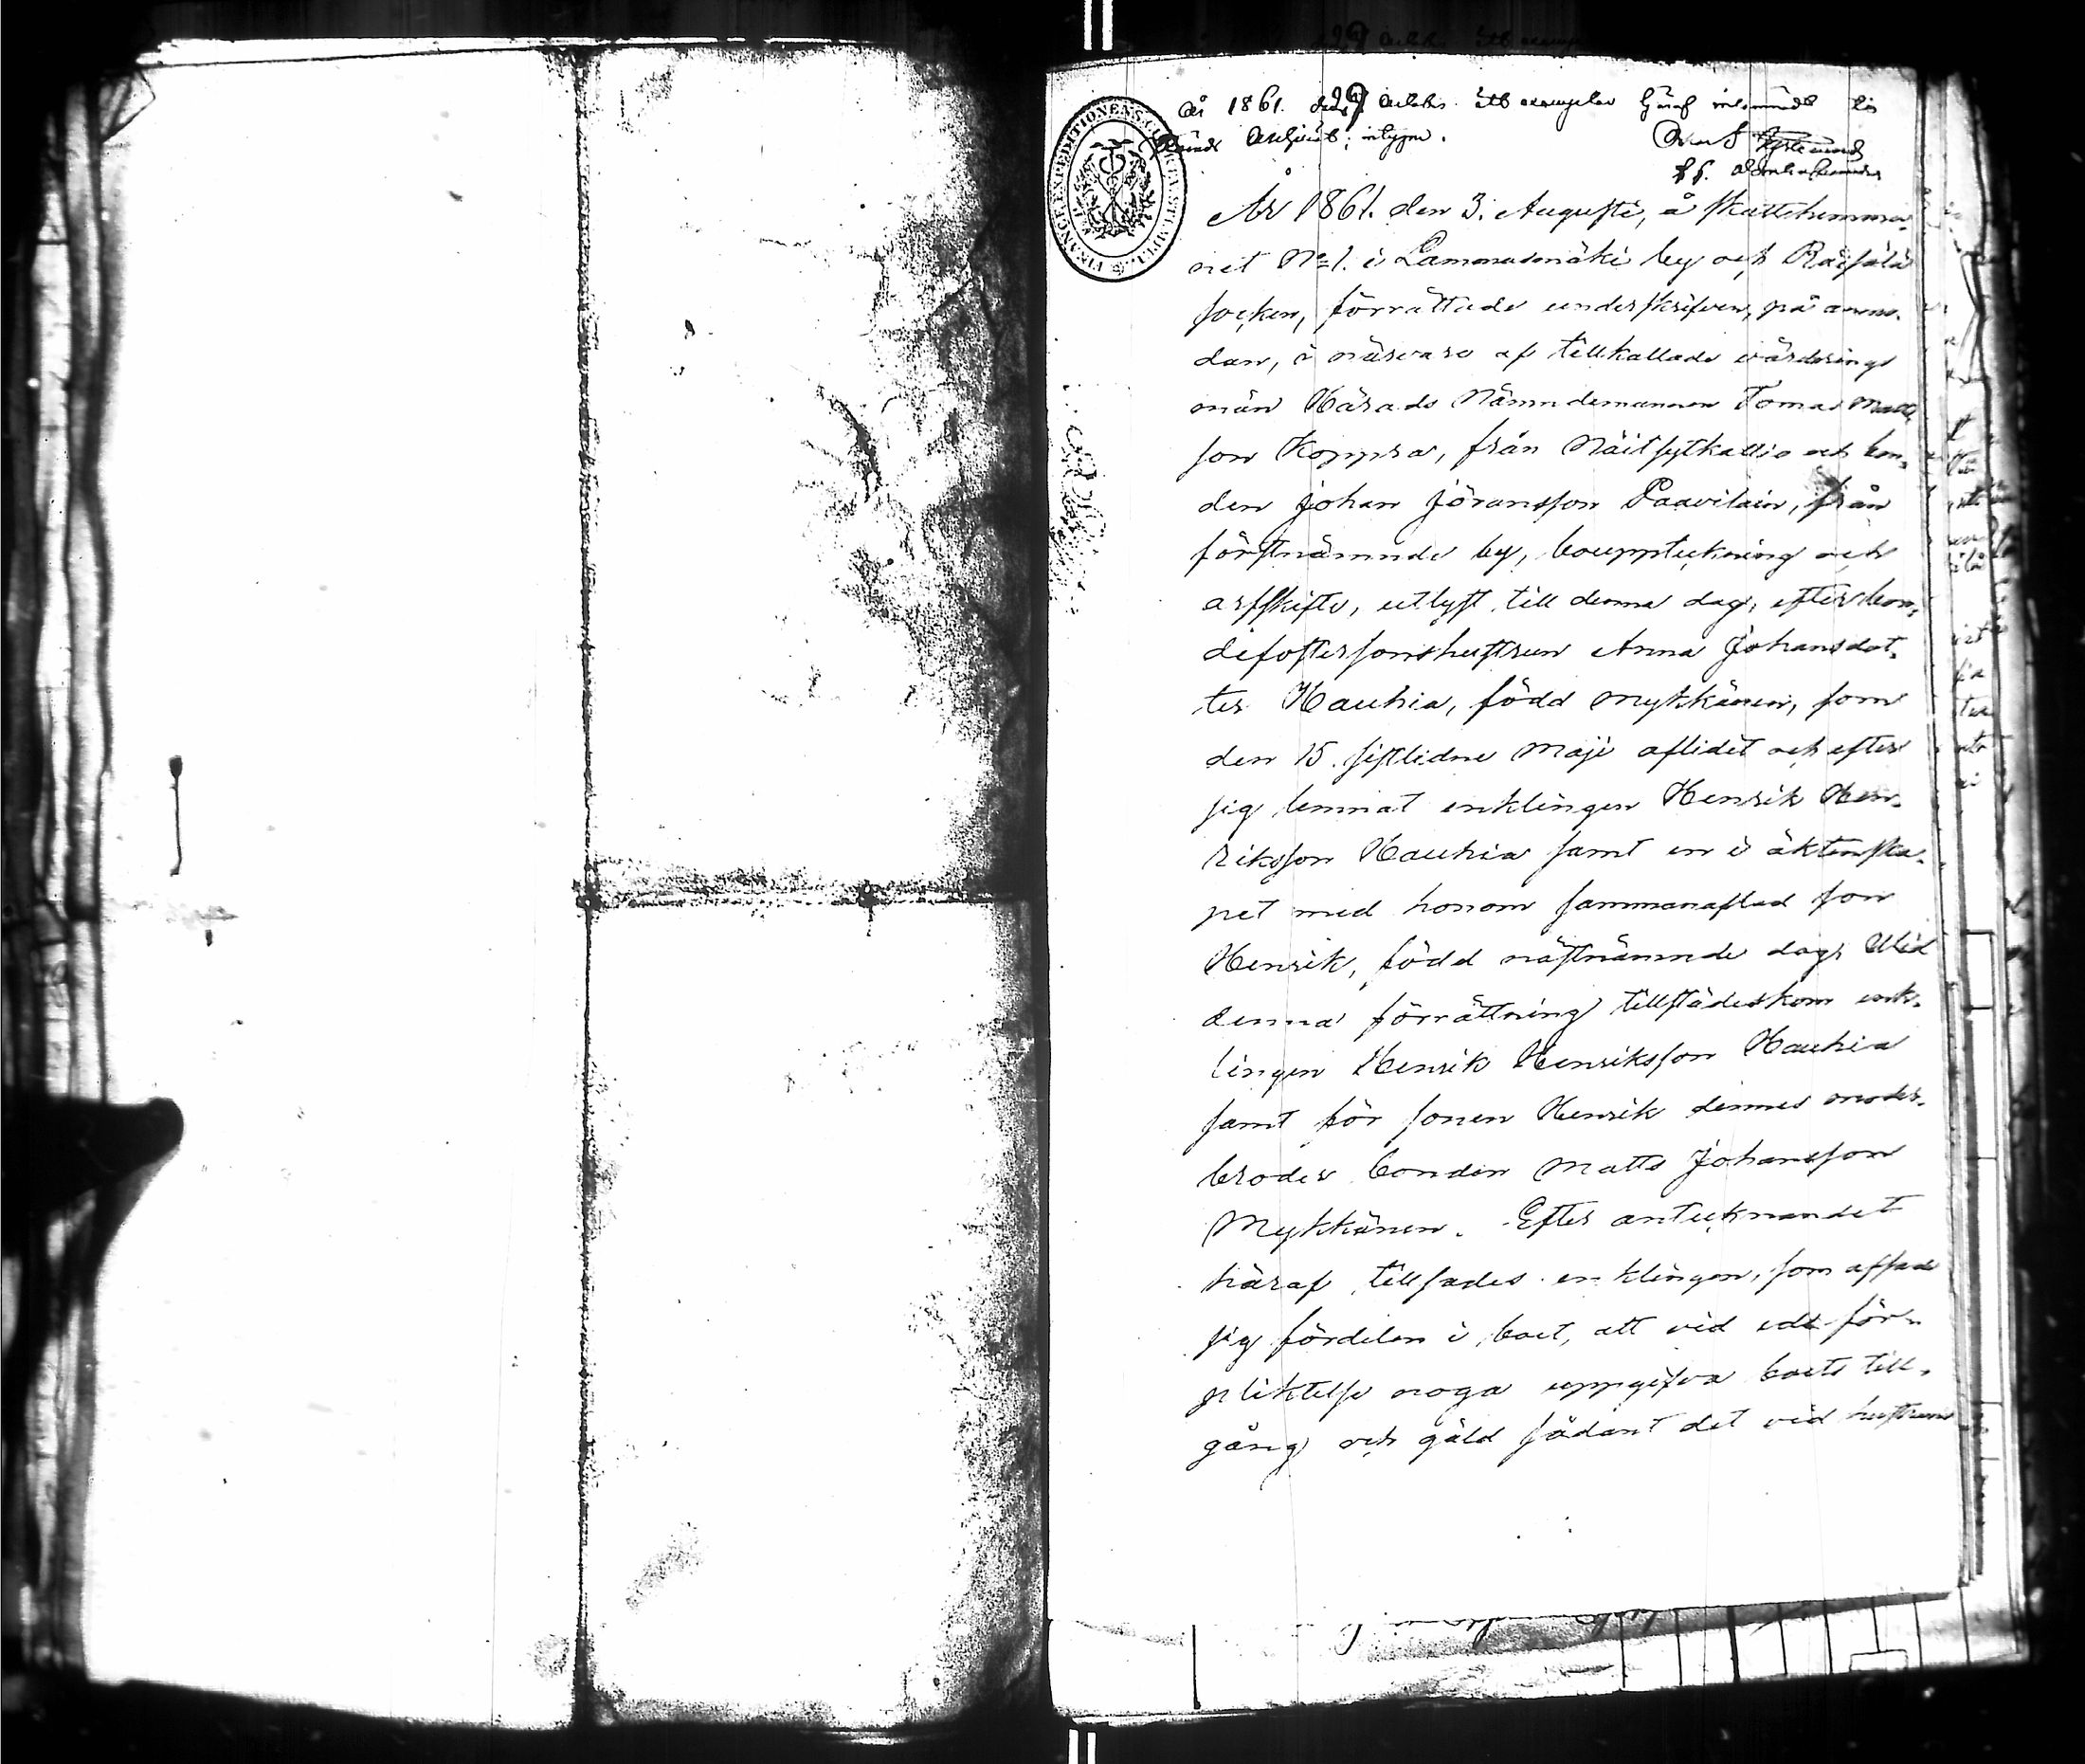 År 1861. den 29 Octobr. ett exemplar häraf inlemnadt
intygar.
År 1861. den 3. Augusti, å skattehemma-
net No 1. i Lammasmäki by och Räisälä
socken, förrättade underskrifven, på anmo-
dan, i närvaro af tillkallade värderings
män Härads Nämndemannen Tomas Matts
son Koppra, från Näitsytkallio och bon-
den Johan Jöransson Paavilain, från
förstnämnde by, bouppteckning och
arfskifte, utlyst till denna dag, efter bon-
defostersonshustrun Anna Johansdot-
ter Hauhia, född Mykkänen, som
den 15. sistlidne Maji aflidit och efter
sig lemnat enklingen Henrik Hen-
riksson Hauhia samt en i äktenska-
pet med honom sammanaflad son
Henrik, född nästnämnde dag. Wid
denna förrättning tillstädeskom enk-
lingen Henrik Henriksson Hauhia
samt för sonen Henrik dennes moder-
broder bonden Matts Johansson
Mykkänen. Efter antecknandet
häraf tillsades enklingen, som afsade
sig fördelen i boet, att vid eds för-
pliktelse noga uppgifva boets till-
gång och gäld sådant det vid hustruns